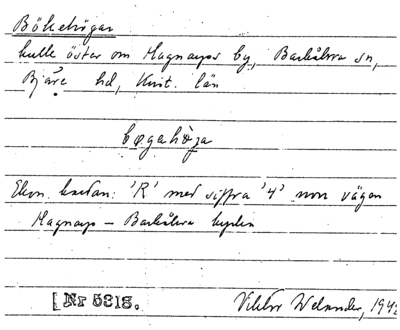 Bökehögar
kulle öster om Magnarps by, Barkåkra sn,
Bjäre hd, Krist. län
bøgahøza
Ekon. kartan: 'R' med siffra '4' norr vägen
Magnarp – Barkåkra kyrka
[Nr 5318.
Viktor Welander, 1942